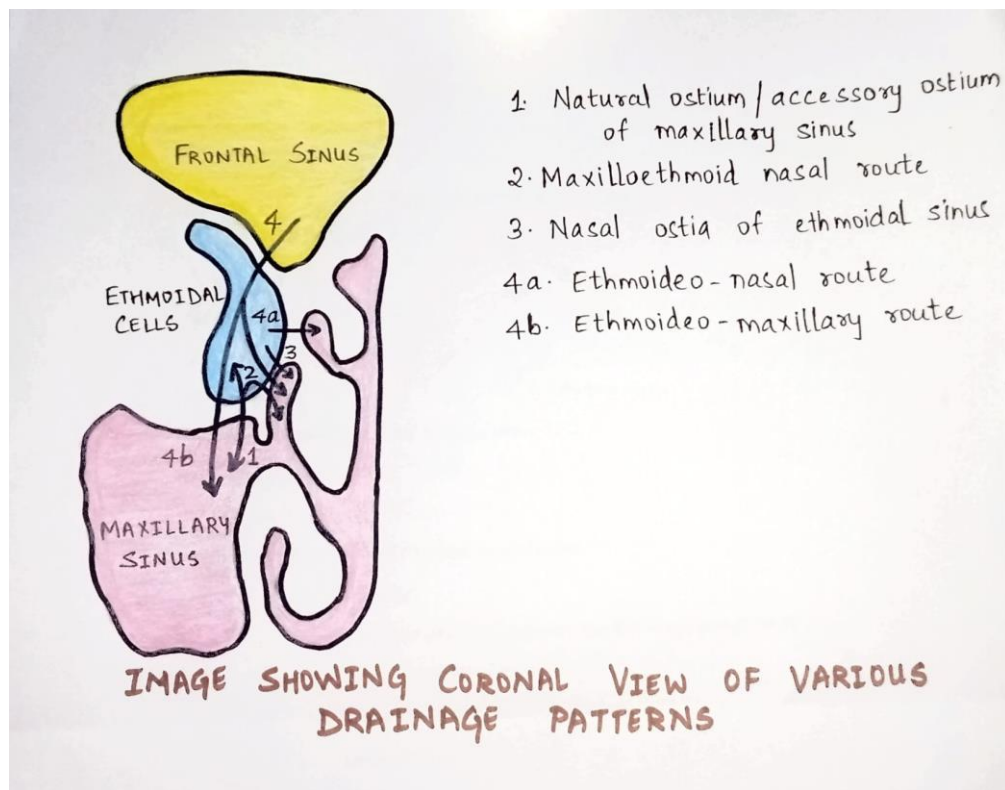 FRONTAL SINUS
4
ETHMOIDAL
CELLS
4a
3
2
4b
1
MAXILLARY
SINUS
1. Natural ostium / accessory ostium
of maxillary sinus
2. Maxilloethmoid nasal route
3. Nasal ostia of ethmoidal sinus
4a. Ethmoideo - nasal route
4b. Ethmoideo - maxillary route
IMAGE SHOWING CORONAL VIEW OF VARIOUS
DRAINAGE PATTERNS